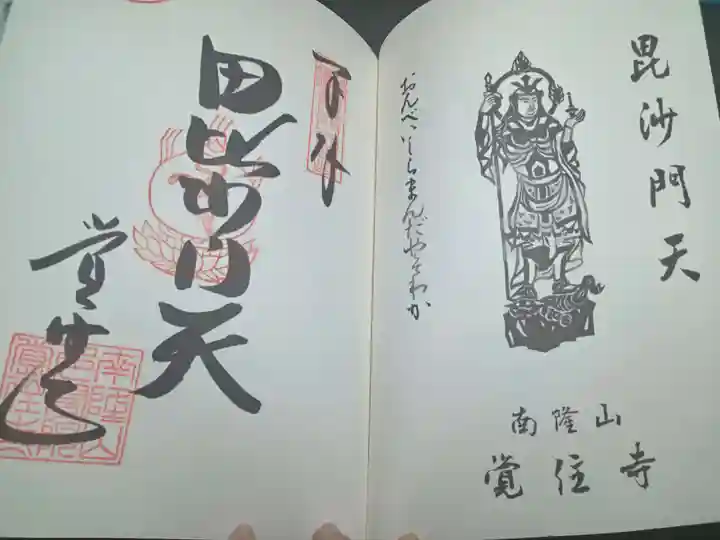 毘沙門天
おんべいしらまんだやそわか
南隆山
覚住寺
奉拝
毘沙門天
覚住寺